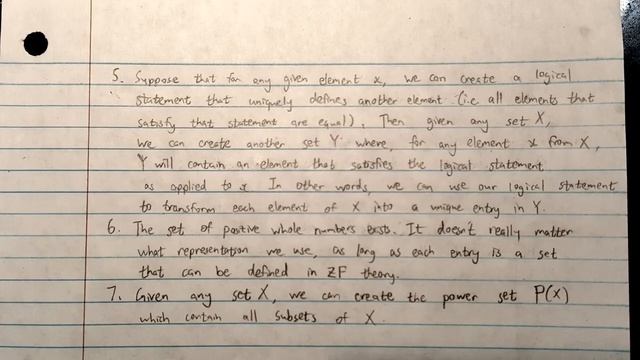 5. Suppose that for any given element x, we can create a logical
statement that uniquely defines another element (i.e. all elements that
satisfy that statement are equal). Then given any set X,
we can create another set Y where, for any element x from X,
Y will contain an element that satisfies the logical statement
as applied to x. In other words, we can use our logical statement
to transform each element of X into a unique entry in Y.
6. The set of positive whole numbers exists. It doesn't really matter
what representation we use, as long as each entry is a set
that can be defined in ZF theory.
7. Given any set X, we can create the power set P(X)
which contain all subsets of X.